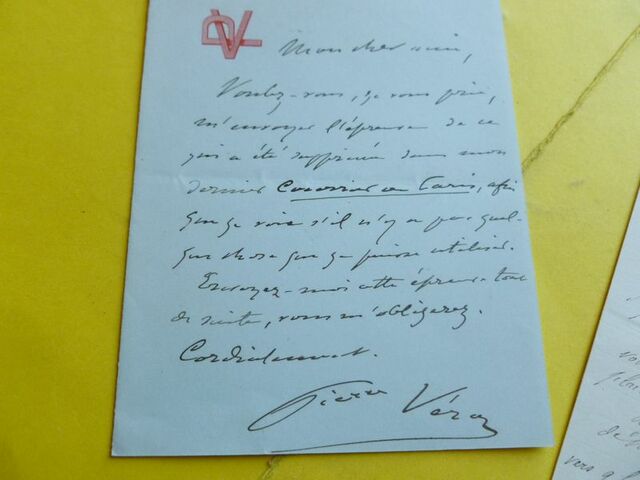 PVL
Mon cher ami,
Voulez-vous, je vous prie,
m'envoyer l'épreuve de ce
qui a été supprimé dans mon
dernier Courrier de Paris, afin
que je voie s'il n'y a pas quel-
que chose que je puisse utiliser.
Envoyez-moi cette épreuve tout
de suite, vous m'obligerez.
Cordialement.
Pierre Véron